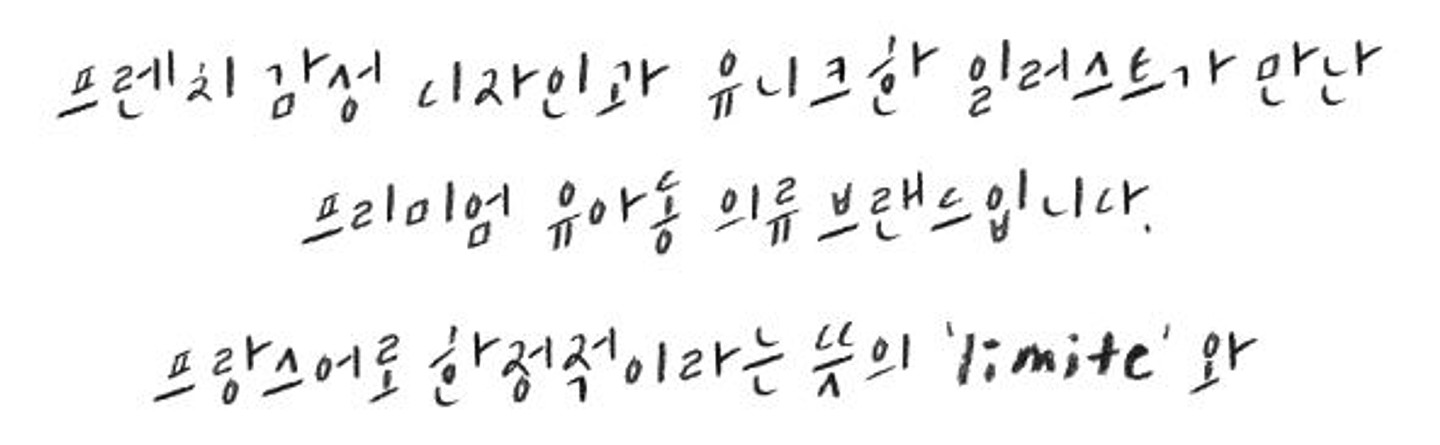 프렌치 감성 디자인과 유니크한 일러스트가 만난
프리미엄 유아동 의류 브랜드입니다.
프랑스어로 한정적이라는 뜻의 'limite' 와